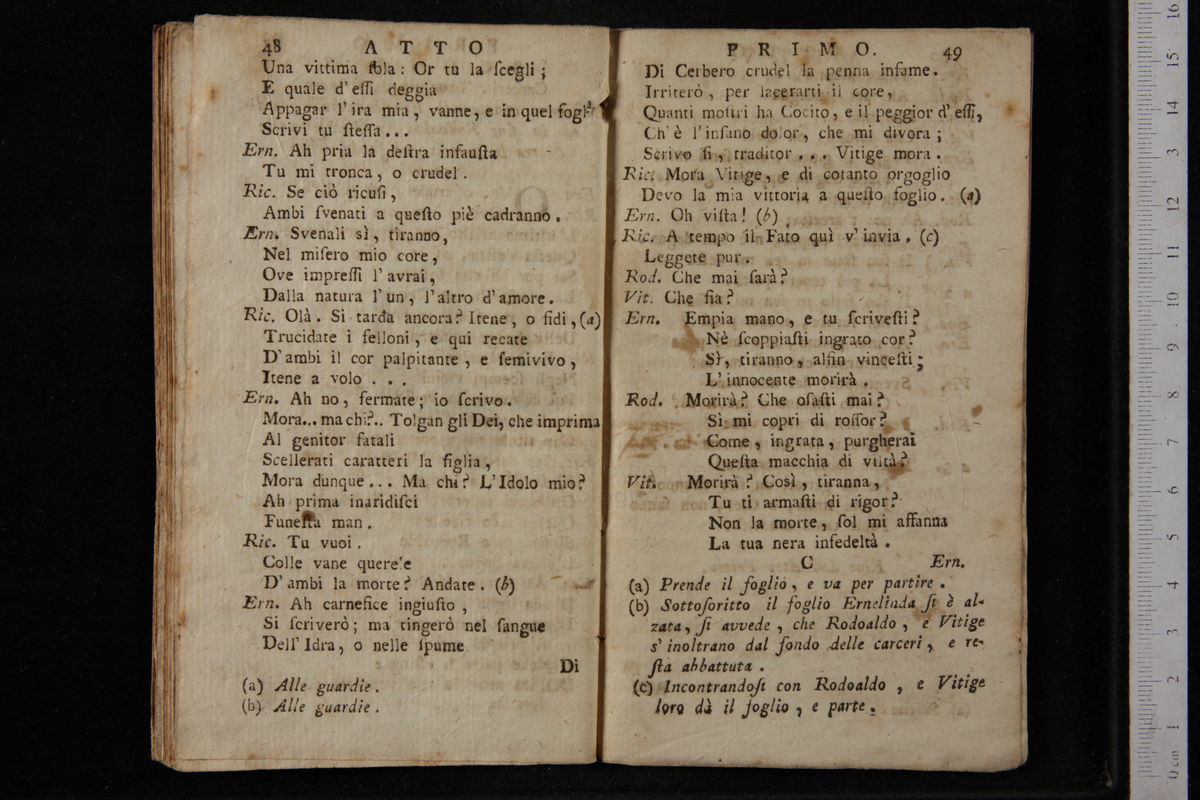 48 ATTO
Una vittima ſola: Or tu la ſcegli;
E quale d'eſſi deggia
Appagar l'ira mia, vanne, e in quel fogl?
Scrivi tu ſteſſa...
Ern. Ah pria la deſtra infauſta
Tu mi tronca, o crudel.
Ric. Se ciò ricuſi,
Ambi ſvenati a queſto piè cadranno.
Ern. Svenali sì, tiranno,
Nel miſero mio core,
Ove impreſſi l'avrai,
Dalla natura l'un, l'altro d'amore.
Ric. Olà. Si tarda ancora? Itene, o fidi, (a)
Trucidate i felloni, e qui recate
D'ambi il cor palpitante, e ſemivivo,
Itene a volo ...
Ern. Ah no, fermate; io ſcrivo.
Mora... ma chi?.. Tolgan gli Dei, che imprima
Al genitor fatali
Scellerati caratteri la figlia,
Mora dunque... Ma chi? L'Idolo mio?
Ah prima inaridiſci
Funeſta man.
Ric. Tu vuoi.
Colle vane querele
D'ambi la morte? Andate. (b)
Ern. Ah carnefice ingiuſto,
Si ſcriverò; ma tingerò nel ſangue
Dell'Idra, o nelle ſpume
Di
(a) Alle guardie.
(b) Alle guardie.
PRIMO. 49
Di Cerbero crudel la penna infame.
Irriterò, per lacerarti il core,
Quanti moſtri ha Cocito, e il peggior d'eſſi,
Ch'è l'inſano dolor, che mi divora;
Scrivo ſi, traditor ... Vitige mora.
Ric. Mora Vitige, e di cotanto orgoglio
Devo la mia vittoria a queſto foglio. (a)
Ern. Oh viſta! (b)
Ric. A tempo il Fato quì v'invia. (c)
Leggete pur.
Rod. Che mai ſarà?
Vit. Che fia?
Ern. Empia mano, e tu ſcriveſti?
Nè ſcoppiaſti ingrato cor?
Sì, tiranno, alfin vinceſti;
L'innocente morirà.
Rod. Morirà? Che oſaſti mai?
Sì mi copri di roſſor?
Come, ingrata, purgherai
Queſta macchia di viltà?
Vit. Morirà? Così, tiranna,
Tu ti armaſti di rigor?
Non la morte, ſol mi affanna
La tua nera infedeltà.
C Ern.
(a) Prende il foglio, e va per partire.
(b) Sottoſcritto il foglio Ernelinda ſi è al-
zata, ſi avvede, che Rodoaldo, e Vitige
s'inoltrano dal fondo delle carceri, e re-
ſta abbattuta.
(c) Incontrandoſi con Rodoaldo, e Vitige
loro dà il foglio, e parte.
0 cm 1 2 3 4 5 6 7 8 9 10 11 12 13 14 15 16